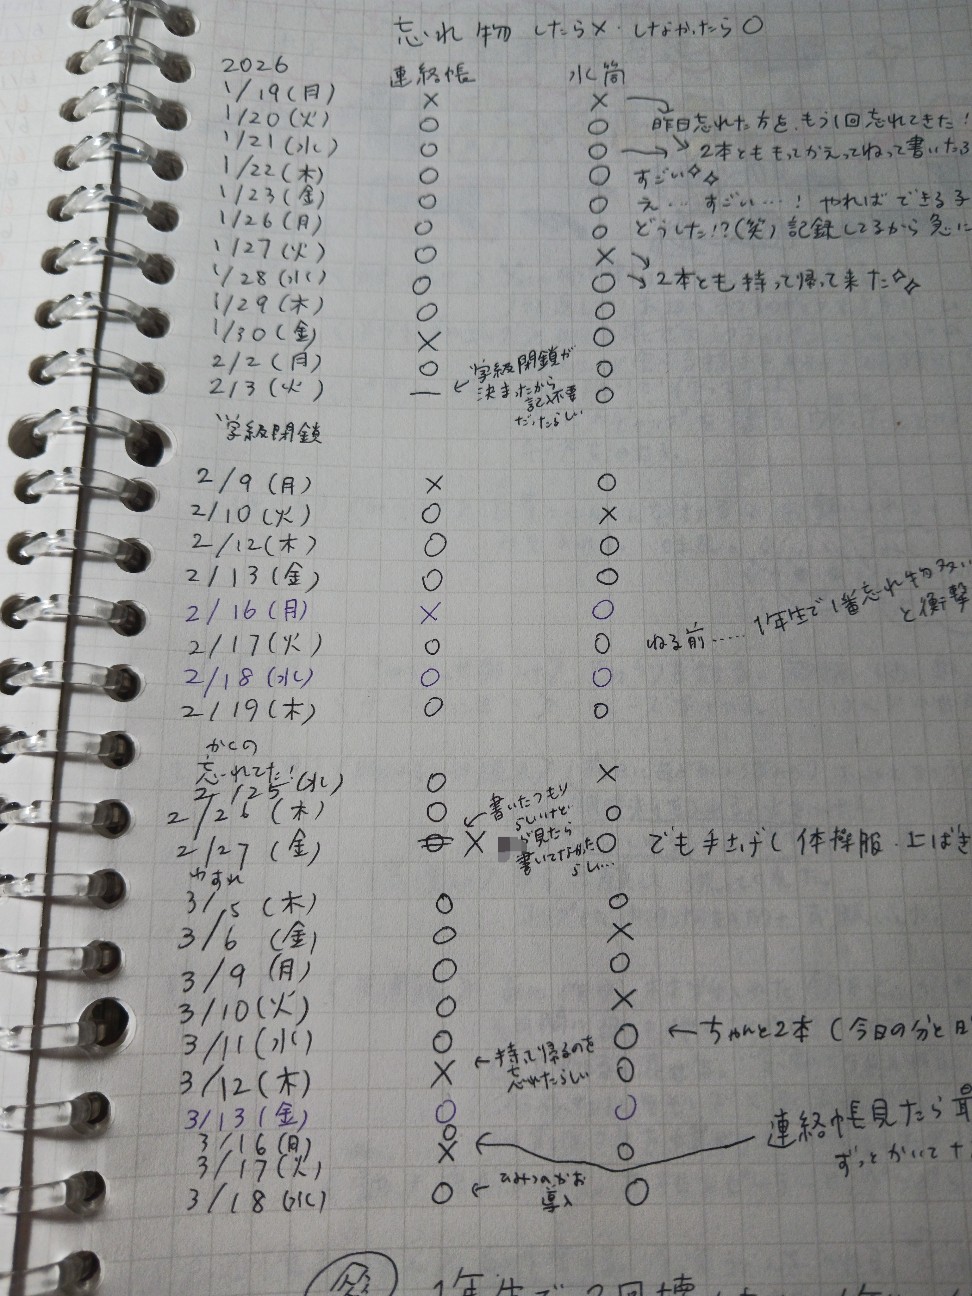 忘れ物 したら×・しなかったら○
2026 連絡帳 水筒
1/19(月) × × →
1/20(火) ○ ○ 昨日忘れた方を、もう1回忘れてきた!
1/21(水) ○ ○ → 2本とももってかえってねって書いたら
1/22(木) ○ ○ すごい✧✧
1/23(金) ○ ○ え…すごい…! やればできる子
1/26(月) ○ ○ どうした!?(笑) 記録してるから急に
1/27(火) ○ ×
1/28(水) ○ ○ → 2本とも持って帰って来た✧✧
1/29(木) ○ ○
1/30(金) × ○
2/2(月) ○ ○
2/3(火) — ← 学級閉鎖が ○
決まったから
記入不要
だったらしい
学級閉鎖
2/9(月) × ○
2/10(火) ○ ×
2/12(木) ○ ○
2/13(金) ○ ○
2/16(月) × ○
2/17(火) ○ ○ ねる前…… 1年生で1番忘れ物多い
と衝撃
2/18(水) ○ ○
2/19(木) ○ ○
かくの
忘れてた!
2/25(水) ○ ×
2/26(木) ○ ○
2/27(金) ○ × ← 書いたつもり ○ でも手さげ(体操服・上ばき
らしいけど
が見たら
書いてなかった
らしい…
3/5(木) ○ ○
3/6(金) ○ ×
3/9(月) ○ ○
3/10(火) ○ ×
3/11(水) ○ ○ ← ちゃんと2本(今日の分と
3/12(木) × ← 持って帰るのを ○
忘れたらしい
3/13(金) ○ ○
3/16(月) ○ ○ 連絡帳見たら最
3/17(火) × ← ずっとかいて
3/18(水) ○ ← ○
導入
1年生で2回